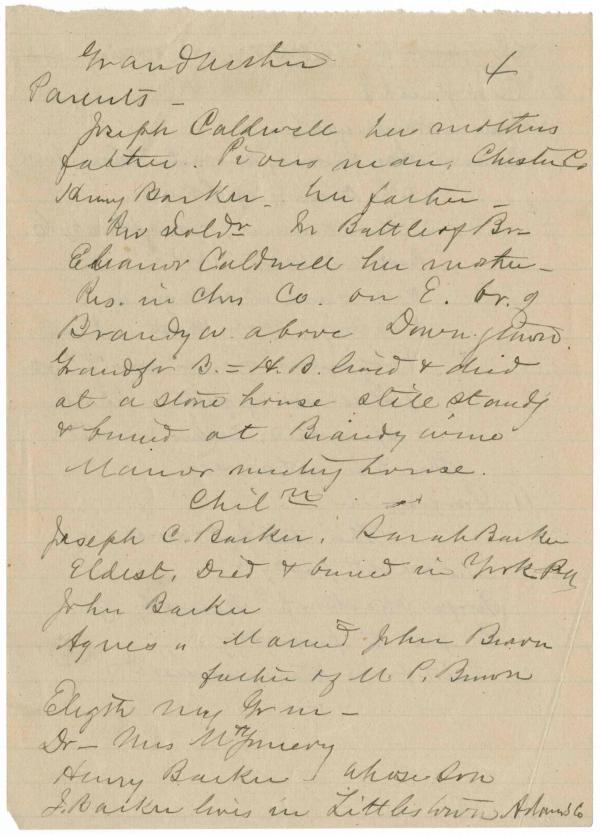 Grandmother 4
Parents -
Joseph Caldwell her mothers
father. Pious man, Chester Co
Henry Barker - her father -
Rev Soldr In Battle of Br-
Eleanor Caldwell her mother -
Res. in Chrs Co. on E. br. of
Brandyw. above Downingtown.
Grandfr B. = H. B. lived & died
at a stone house still standg
& buried at Brandywine
Manor meeting house.
Chilrn
Joseph C. Barker. Sarah Barker
Eldest. Died & buried in York Pa
John Barker
Agnes " Married John Brown
father of M. P. Brown
Elizth my Gr m -
Dr - Mrs Mtgomery
Henry Barker - whose son
J. Barker lives in Littlestown Adams Co